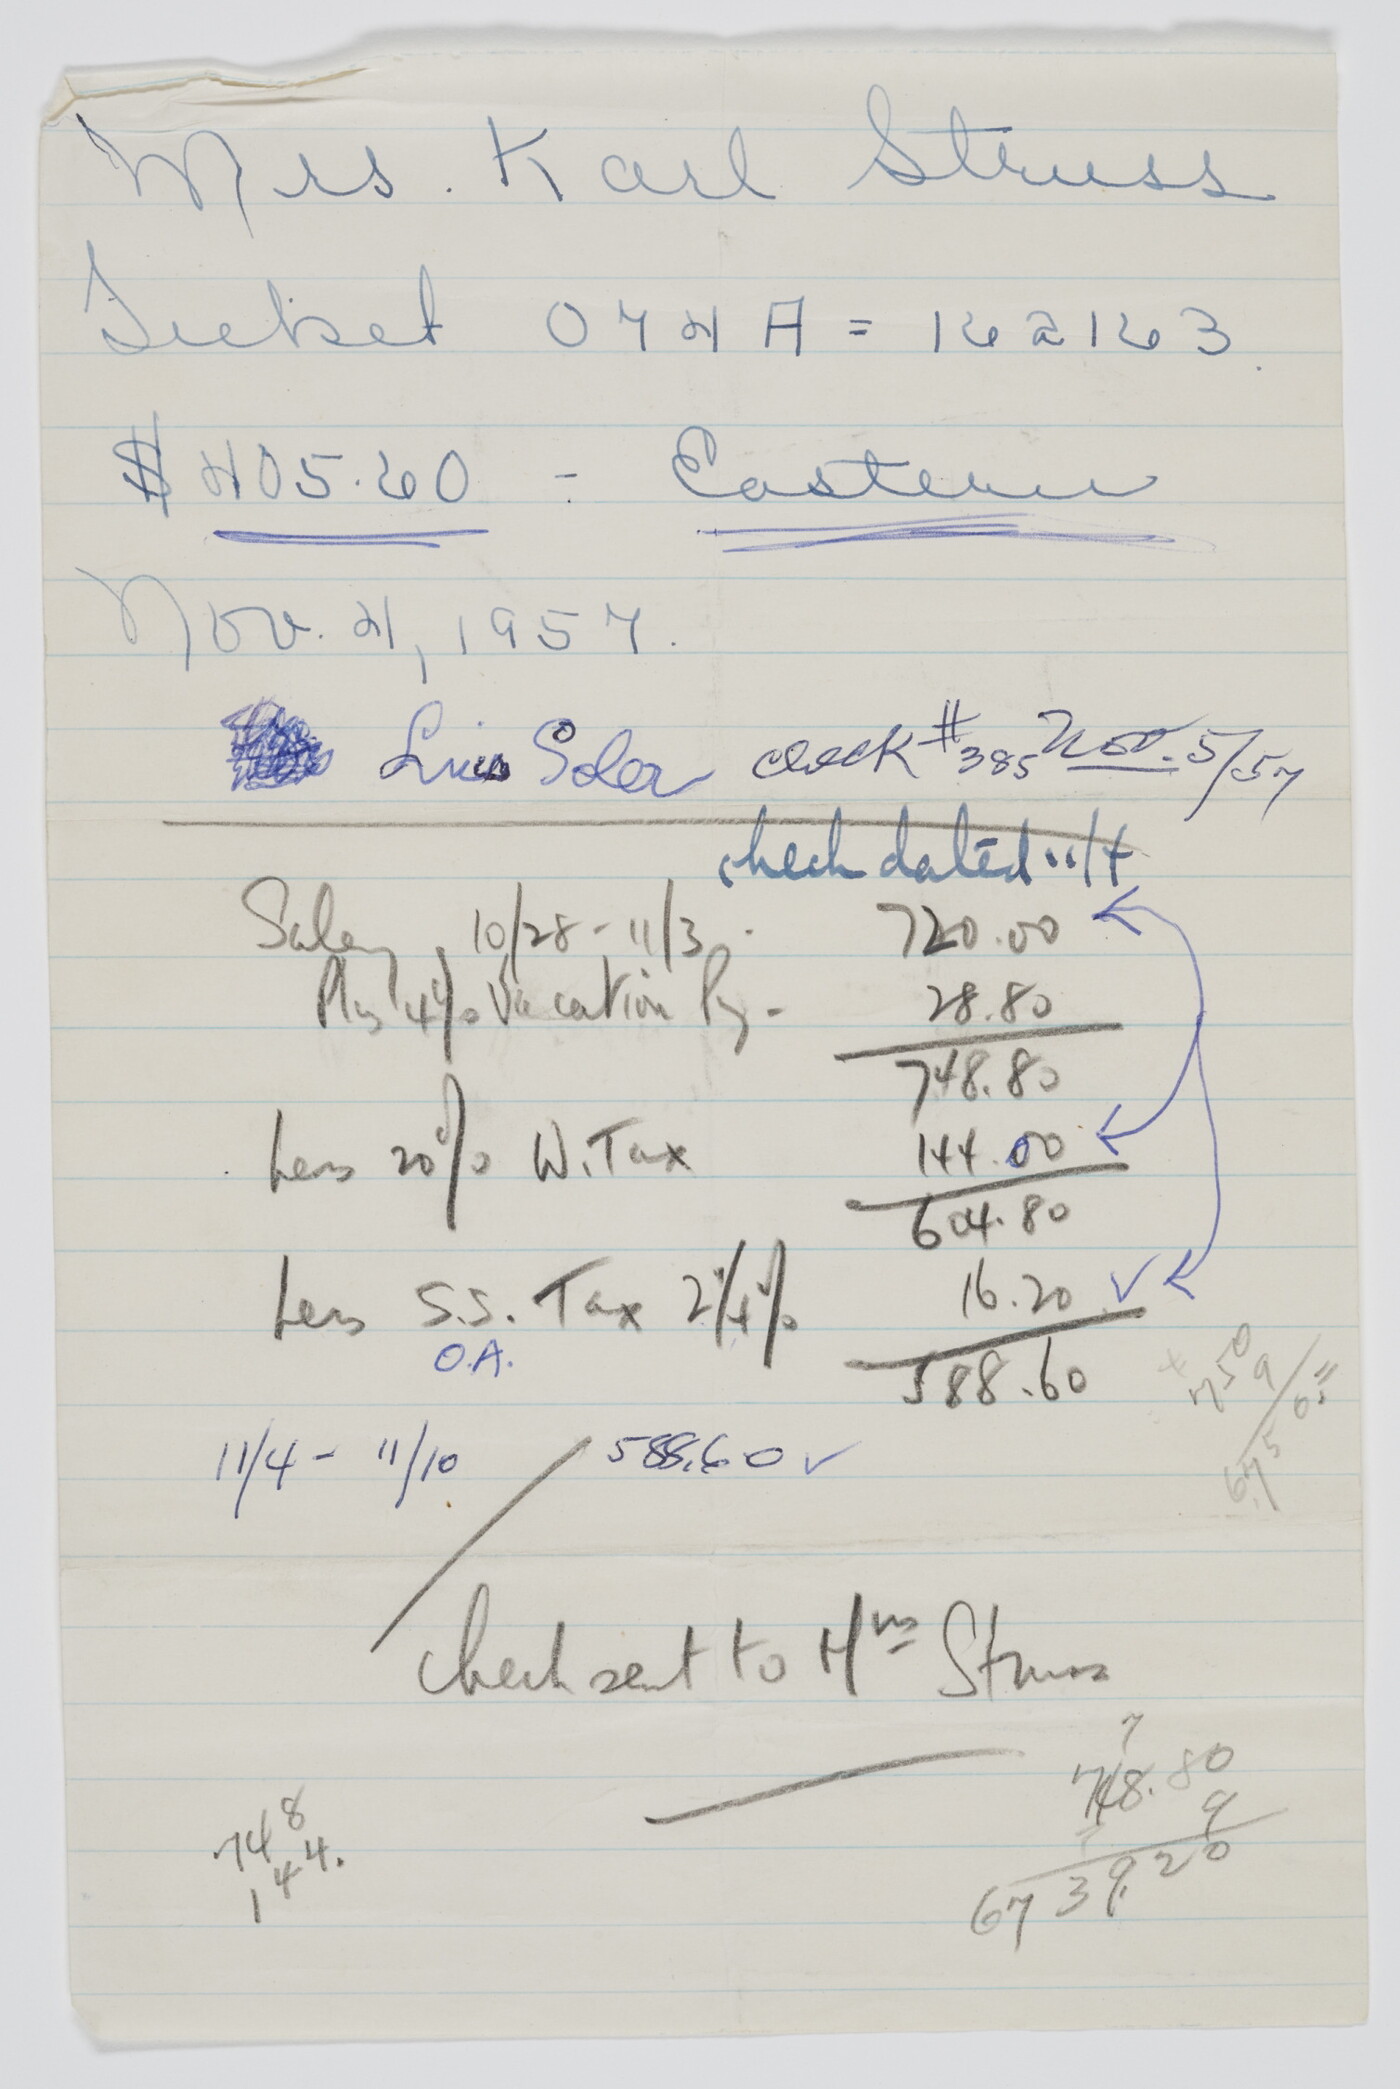 Mrs. Karl Struss
Ticket 074A = 162163.
$405.60 - Eastern
Nov. 4, 1957.
Luis Soler check #385 Nov. 5/57
check dated 11/4
Salary 10/28 - 11/3 - 720.00
Plus 4% Vacation Py - 28.80
748.80
Less 20% W. Tax 144.00
604.80
Less S.S. Tax 2 1/4% 16.20 ✓
O.A.
588.60
11/4 - 11/10 588.60 ✓
check sent to Mrs Struss
7
748.80
9
6739.20
748
144.
750
9
675